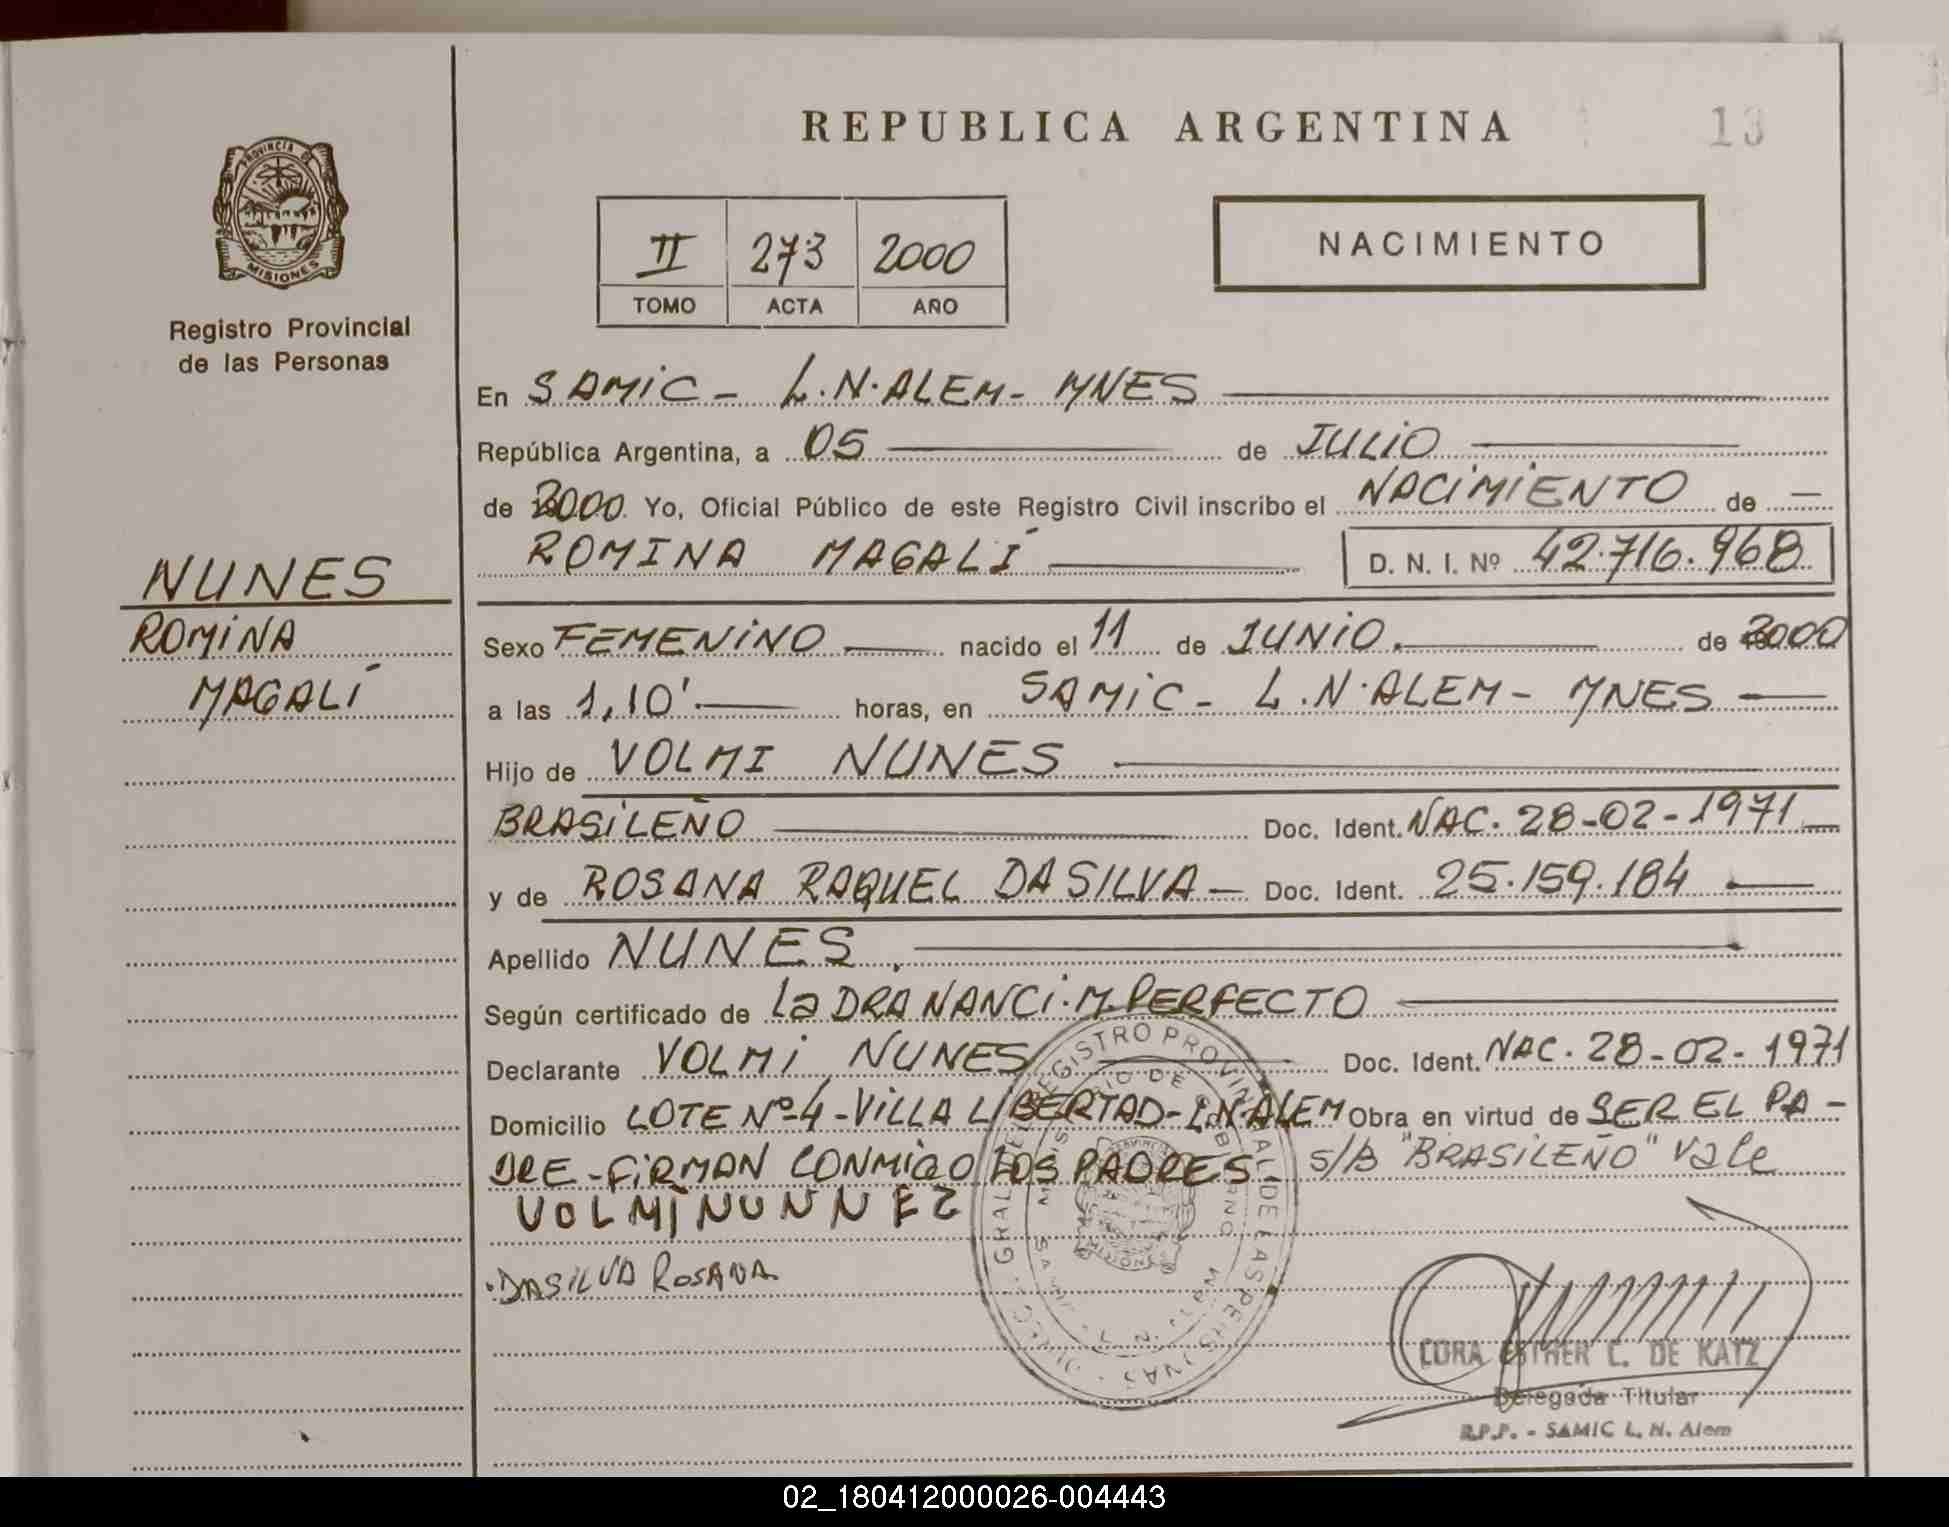 REPUBLICA ARGENTINA
13
PROVINCIA DE
MISIONES
Registro Provincial
de las Personas
II 273 2000
TOMO ACTA AÑO
NACIMIENTO
En SAMIC - L.N.ALEM - MNES
República Argentina, a 05 de JULIO
de 2000 Yo, Oficial Público de este Registro Civil inscribo el NACIMIENTO de
ROMINA MAGALÍ D. N. I. Nº 42.716.968
NUNES
ROMINA
MAGALÍ
Sexo FEMENINO nacido el 11 de JUNIO. de 2000
a las 1,10' horas, en SAMIC - L.N.ALEM - MNES
Hijo de VOLMI NUNES
BRASILEÑO Doc. Ident. NAC. 28-02-1971
y de ROSANA RAQUEL DA SILVA Doc. Ident. 25.159.184
Apellido NUNES.
Según certificado de La DRA NANCI.M.PERFECTO
Declarante VOLMI NUNES Doc. Ident. NAC. 28-02-1971
Domicilio LOTE Nº4-VILLA LIBERTAD-L.N.ALEM Obra en virtud de SER EL PA-
DRE-FIRMAN CONMIGO LOS PADRES s/B "BRASILEÑO" Vale
VOLMI NUNNEZ
DASILVA ROSANA
REGISTRO PROVINCIAL DE LAS PERSONAS
CORA ESTHER C. DE KATZ
Delegada Titular
R.P.P. - SAMIC L. N. Alem
02_180412000026-004443